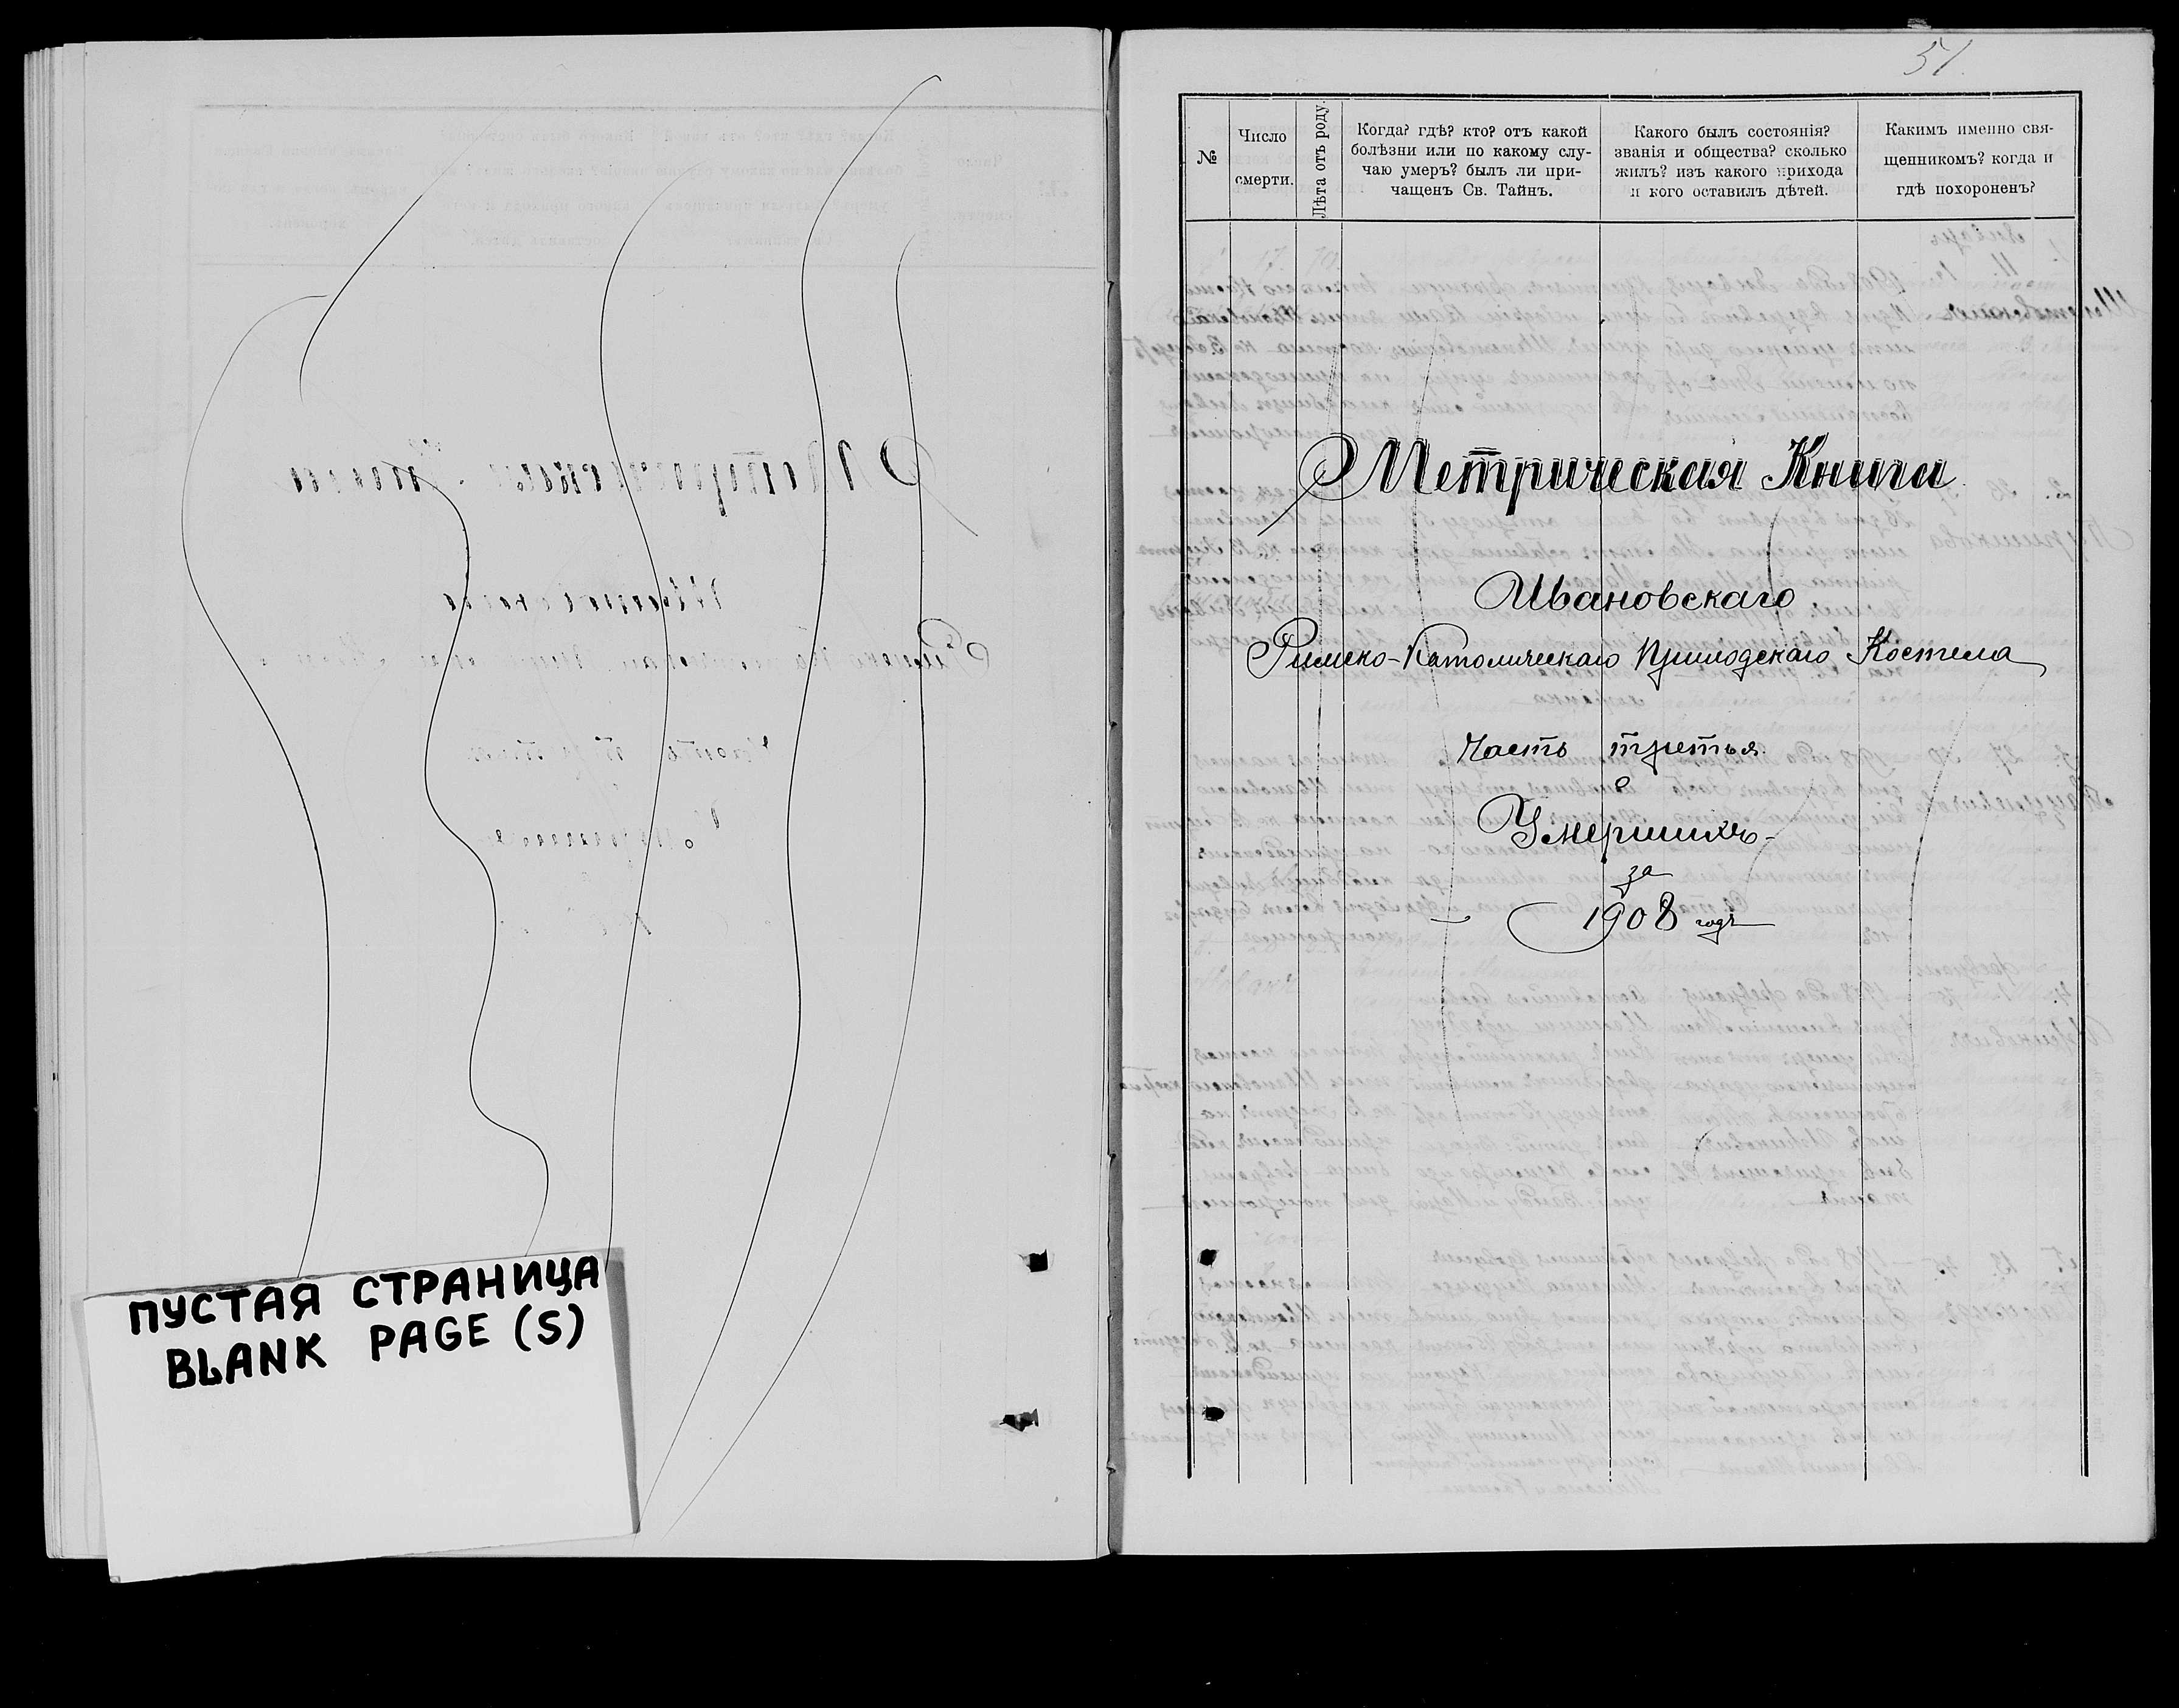 ПУСТАЯ СТРАНИЦА
BLANK PAGE (S)
51.
№
Число
смерти.
Лѣта отъ роду.
Когда? гдѣ? кто? отъ какой
болѣзни или по какому слу-
чаю умеръ? былъ ли при-
чащенъ Св. Тайнъ.
Какого былъ состоянія?
званія и общества? сколько
жилъ? изъ какого прихода
и кого оставилъ дѣтей.
Какимъ именно свя-
щенникомъ? когда и
гдѣ похороненъ?
Метрическая Книга
Ивановскаго
Римско-Католическаго Приходскаго Костела
Часть третья
о
Умершихъ
за
1908 годъ